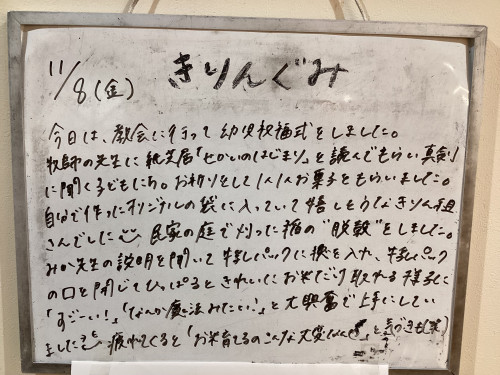 11/8(金)
きりんぐみ
今日は、教会に行って幼児祝福式をしました。
牧師の先生に紙芝居「せかいのはじまり」を読んでもらい真剣
に聞く子どもたち。お祈りをして1人1人お菓子をもらいました。
自分で作ったオリジナルの袋に入っていて嬉しそうなきりん組
さんでした 民家の庭で刈った稲の"脱穀"をしました。
みか先生の説明を聞いて牛乳パックに穂を入れ、牛乳パック
の口を閉じてひっぱるときれいにお米だけ取れる様子に
「すごーい!」「なんか魔法みたい!」と大興奮で上手にしてい
ました 疲れてくると「お米育てるのこんな大変なん と気づきも(笑)